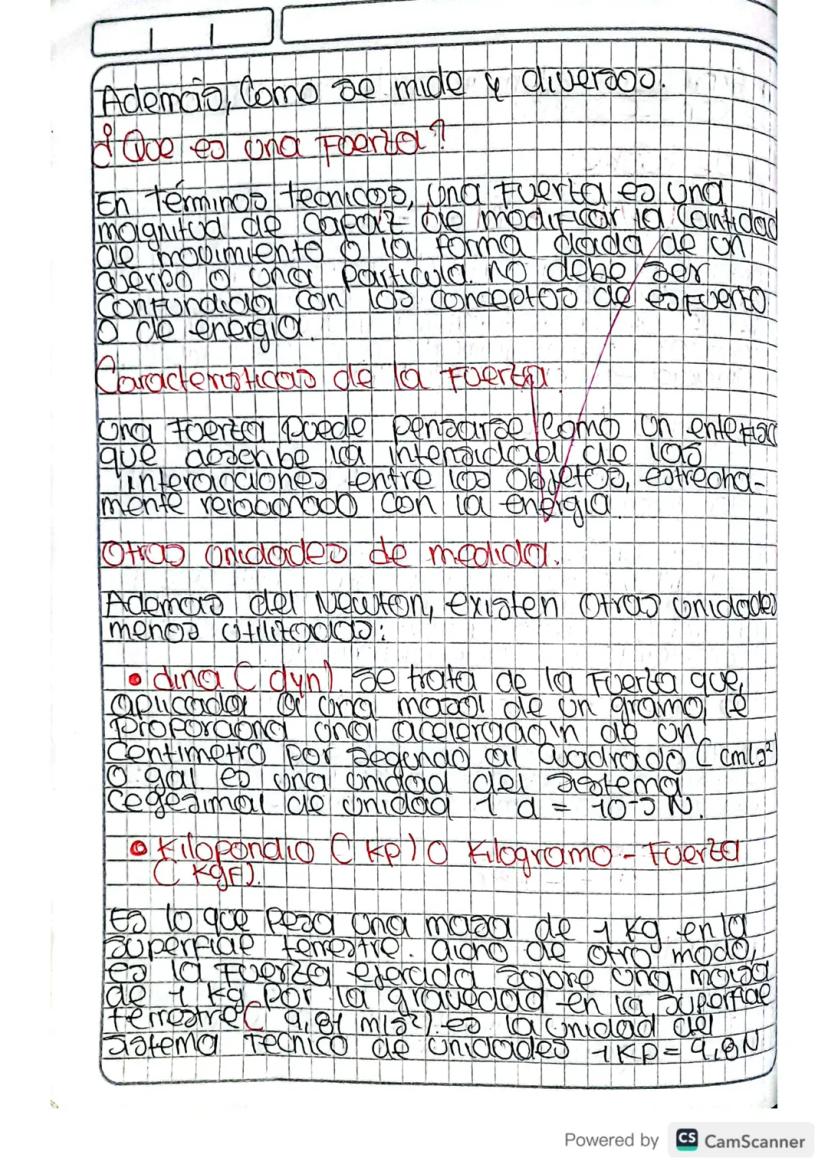 Además, Como se mide y diversos.
¿Que es una Fuerza?
En términos tecnicos, una Fuerza es una
magnitud de capaz de modificar la Cantidad
de movimiento o la forma dada de un
cuerpo o una particula. no debe ser
Confundida con los conceptos de esfuerto
o de energia.
Caracteristicas de la Fuerza.
Una Fuerza puede pensarse Como un
que describe la intensidad de las
interacciones entre los Objetos, estrecha-
mente relacionado con la energia.
Otras unidades de medida.
Ademas del Newton, existen Otras unidades
menos utilizadas:
• dina ( dyn). Se trata de la Fuerza que,
aplicada a una masa de un gramo, le
proporciona una aceleración de un
Centimetro por segundo al Cuadrado ( cm/s²)
O gal es una unidad del sistema
cegesimal de unidad 1 d = 10-5 N.
• Kilopondio ( kp) O Kilogramo - Fuerza
( KgF).
Es lo que pesa una masa de 1 kg en la
superficie terrestre. dicho de otro modo,
es la Fuerza ejercida sobre una masa
de 1 kg por la gravedad en la superficie
terrestre ( 9,81 m/s²). es la unidad del
sistema Tecnico de unidades 1 Kp = 9,8 N
Powered by CS CamScanner